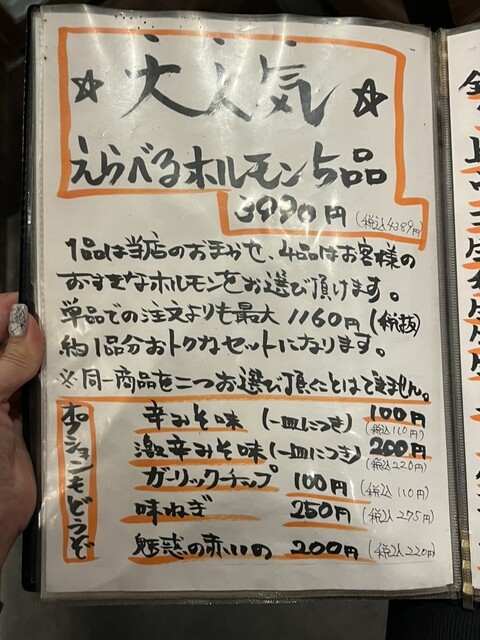 ☆大人気☆
えらべるホルモン5品
3990円(税込4389円)
1品は当店のおまかせ、4品はお客様の
おすきなホルモンをお選び頂けます。
単品での注文よりも最大1160円(税抜)
約1品分おトクなセットになります。
※同一商品を二つお選び頂くことはできません。
オプションもどうぞ
辛みそ味(一皿につき)100円
(税込110円)
激辛みそ味(一皿につき)200円
(税込220円)
ガーリックチップ 100円(税込110円)
味ねぎ 250円(税込275円)
魅惑の赤いの 200円(税込220円)